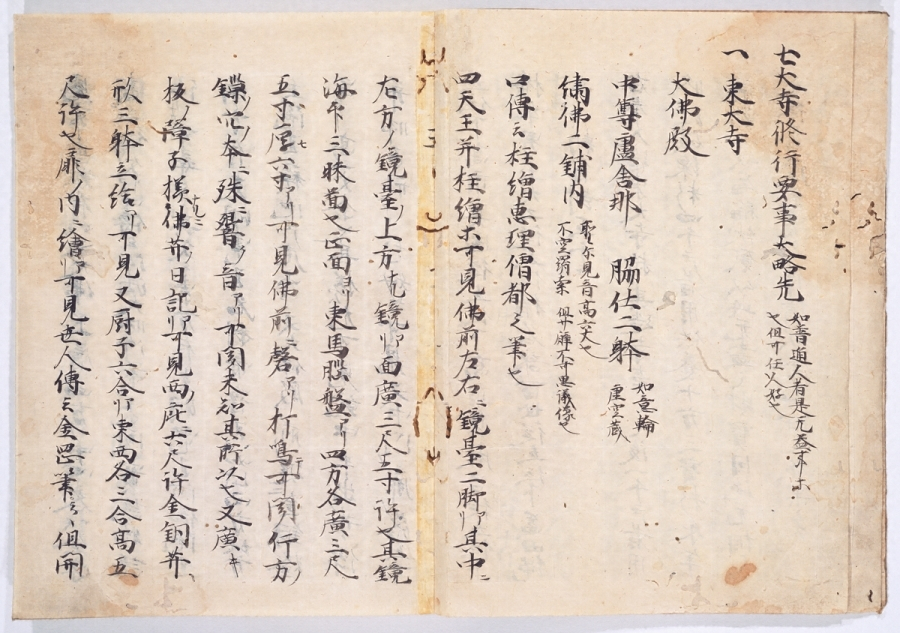 七大寺修行要事大略先
如普通人者是尤益事等
也但可任人好也
一 東大寺
大佛殿
中尊盧舎那 脇仕二躰
如意輪
虚空蔵
繍佛二鋪内
聖 見音高六丈也
不空羂索 但 像也
口傳云柱繪惠理僧都之筆也
四天王并柱繪等可見佛前左右ニ鏡臺二脚アリ其中ニ
左方ノ鏡臺ノ上方ナル鏡アリ面廣三尺五寸許也其鏡
海 三昧面也正面ヨリ東馬脳盤アリ四方各廣三尺
五寸厚六寸アリ可見佛前ニ磬アリ打鳴可聞行方ノ
七
鐃 本ニ殊響ノ音アリ可聞未知其所以也又廣キ
板ノ障子ニ様佛并日記アリ可見西庇ニ六尺許金銅并
形三躰立給ヘリ可見又厨子六合アリ東西各三合高五
尺許也扉ノ内ニ繪アリ可見世人傳云金岡筆云々但開